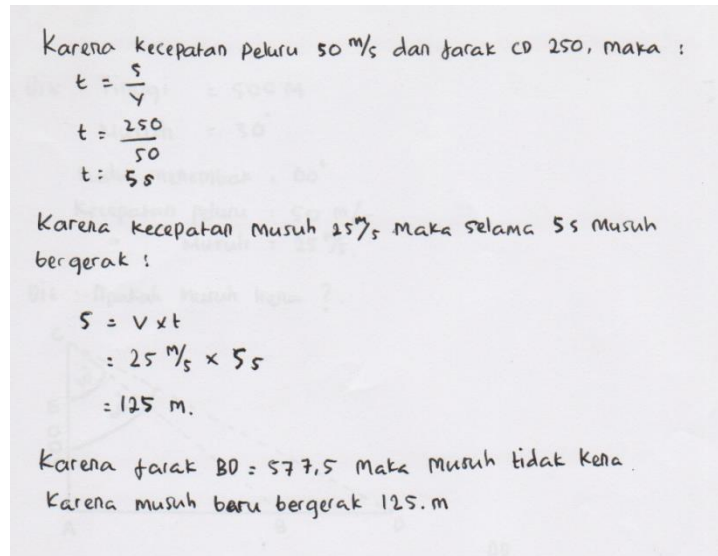 Karena kecepatan peluru 50 m/s dan jarak CD 250, maka :
t = s/v
t = 250/50
t = 5s
Karena kecepatan musuh 25 m/s maka selama 5s musuh
bergerak :
S = v x t
= 25 m/s x 5s
= 125 m.
Karena jarak BD = 577,5 maka musuh tidak kena.
Karena musuh baru bergerak 125.m